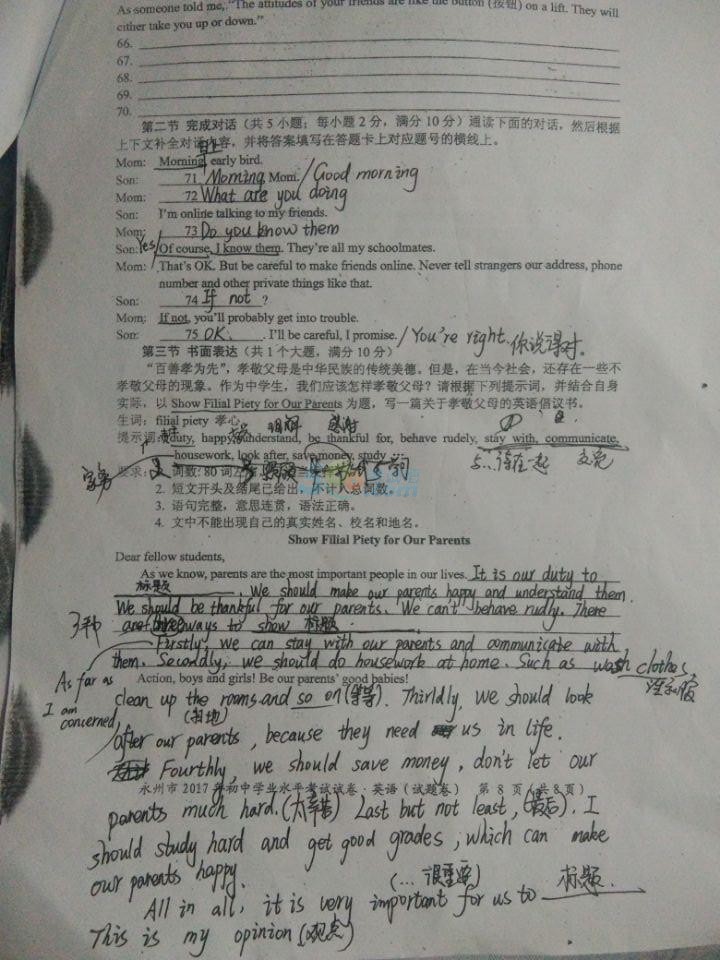 As someone told me, "The attitudes of your friends are like the button (按钮) on a lift. They will
either take you up or down."
66.
67.
68.
69.
70.
第二节 完成对话（共 5 小题；每小题 2 分，满分 10 分）通读下面的对话，然后根据
上下文补全对话内容，并将答案填写在答题卡上对应题号的横线上。
Mom: Morning, early bird.
Son: 71 Morning, Mom. / Good morning
Mom: 72 What are you doing
Son: I'm online talking to my friends.
Mom: 73 Do you know them
Son: Yes, Of course, I know them. They're all my schoolmates.
Mom: That's OK. But be careful to make friends online. Never tell strangers our address, phone
number and other private things like that.
Son: 74 If not ?
Mom: If not, you'll probably get into trouble.
Son: 75 OK. . I'll be careful, I promise. / You're right. 你说得对。
第三节 书面表达（共 1 个大题，满分 10 分）
“百善孝为先”，孝敬父母是中华民族的传统美德。但是，在当今社会，还存在一些不
孝敬父母的现象。作为中学生，我们应该怎样孝敬父母？请根据下列提示词，并结合自身
实际，以 Show Filial Piety for Our Parents 为题，写一篇关于孝敬父母的英语倡议书。
生词：filial piety 孝心 明辩 感谢
提示词：duty, happy, understand, be thankful for, behave rudely, stay with, communicate,
housework, look after, save money, study
家务 照顾 学习 与…待在一起 交流
要求：1. 词数：80 词左右
2. 短文开头及结尾已给出，不计入总词数。
3. 语句完整，意思连贯，语法正确。
4. 文中不能出现自己的真实姓名、校名和地名。
Show Filial Piety for Our Parents
Dear fellow students,
As we know, parents are the most important people in our lives. It is our duty to
标题 . We should make our parents happy and understand them.
We should be thankful for our parents. We can't behave rudly. There
are three ways to show 标题 .
Firstly, we can stay with our parents and communicate with
them. Secondly, we should do housework at home. Such as wash clothes,
洗衣服
As far as
I am
concerned,
Action, boys and girls! Be our parents' good babies!
clean up the rooms and so on (等等). Thirldly, we should look
(扫地)
after our parents, because they need us in life.
Fourthly, we should save money, don't let our
永州市 2017 年初中学业水平考试试卷·英语（试题卷） 第 8 页（共 8 页）
parents much hard. (太辛苦) Last but not least, (最后). I
should study hard and get good grades, which can make
our parents happy.
(… 很重要)
All in all, it is very important for us to 标题.
This is my opinion (观点)